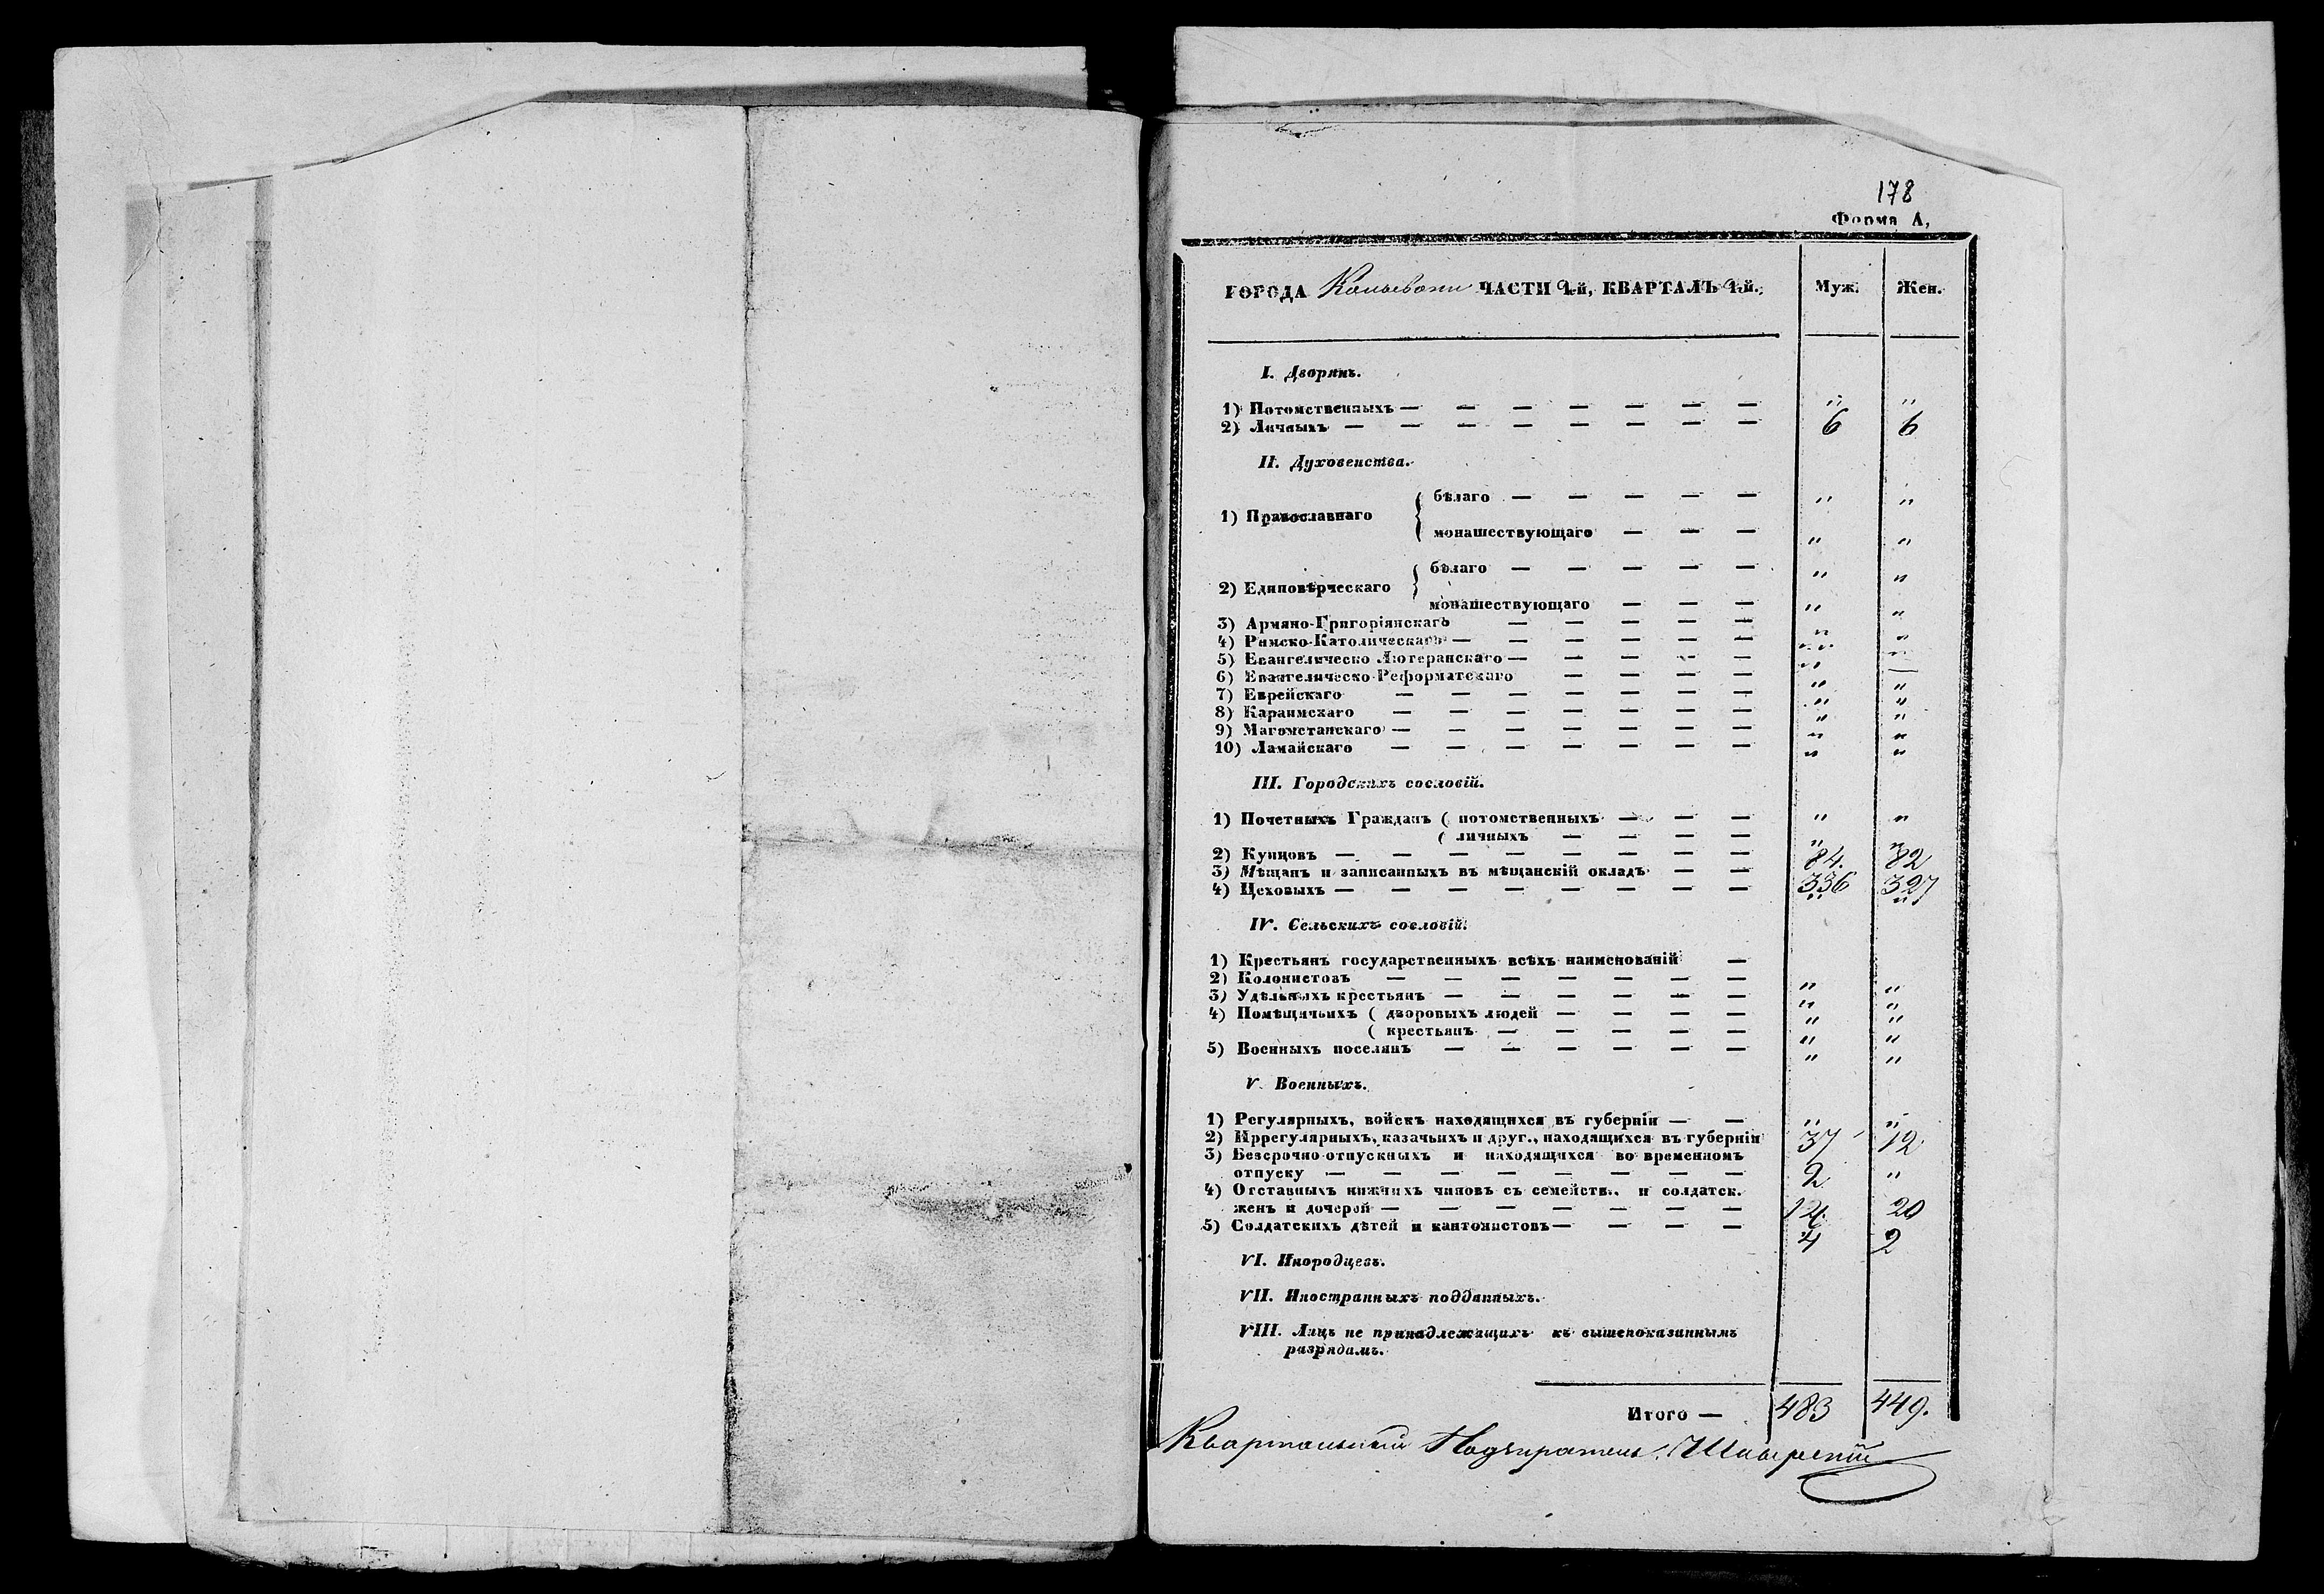 178
Форма А,
ГОРОДА Колывани ЧАСТИ 1-й, КВАРТАЛЪ 1-й. Муж. Жен.
I. Дворянъ.
1) Потомственныхъ — — — — — — — " "
2) Личныхъ — — — — — — — — 6 6
II. Духовенства.
1) Православнаго { бѣлаго — — — — — " "
монашествующаго — — — " "
2) Единовѣрческаго { бѣлаго — — — — — " "
монашествующаго — — — " "
3) Армяно-Григоріянскаго — — — — — " "
4) Римско-Католическаго — — — — — — " "
5) Евангелическо Лютеранскаго — — — — — " "
6) Евангелическо-Реформатскаго — — — — " "
7) Еврейскаго — — — — — — — " "
8) Караимскаго — — — — — — — " "
9) Магометанскаго — — — — — — — " "
10) Ламайскаго — — — — — — — " "
III. Городскихъ сословій.
1) Почетныхъ Гражданъ ( потомственныхъ — — — " "
( личныхъ — — — — " "
2) Купцовъ — — — — — — — — 84. 82
3) Мѣщанъ и записанныхъ въ мѣщанскій окладъ — — 336 327
4) Цеховыхъ — — — — — — — — " "
IV. Сельскихъ сословій.
1) Крестьянъ государственныхъ всѣхъ наименованій —
2) Колонистовъ — — — — — — — " "
3) Удѣльныхъ крестьянъ — — — — — — " "
4) Помѣщичьихъ ( дворовыхъ людей — — — — " "
( крестьянъ — — — — — " "
5) Военныхъ поселянъ — — — — — — " "
V. Военныхъ.
1) Регулярныхъ, войскъ находящихся въ губерніи — — " "
2) Иррегулярныхъ, казачьихъ и друг., находящихся въ губерніи 37 12
3) Безсрочно-отпускныхъ и находящихся во временномъ
отпуску — — — — — — — — 2 "
4) Отставныхъ нижнихъ чиновъ съ семейств. и солдатск.
женъ и дочерей — — — — — — — 14. 20
5) Солдатскихъ дѣтей и кантонистовъ — — — — 4 2
VI. Инородцевъ.
VII. Иностранныхъ подданныхъ.
VIII. Лицъ не принадлежащихъ къ вышепоказаннымъ
разрядамъ.
Итого — 483 449.
Квартальный Надзиратель